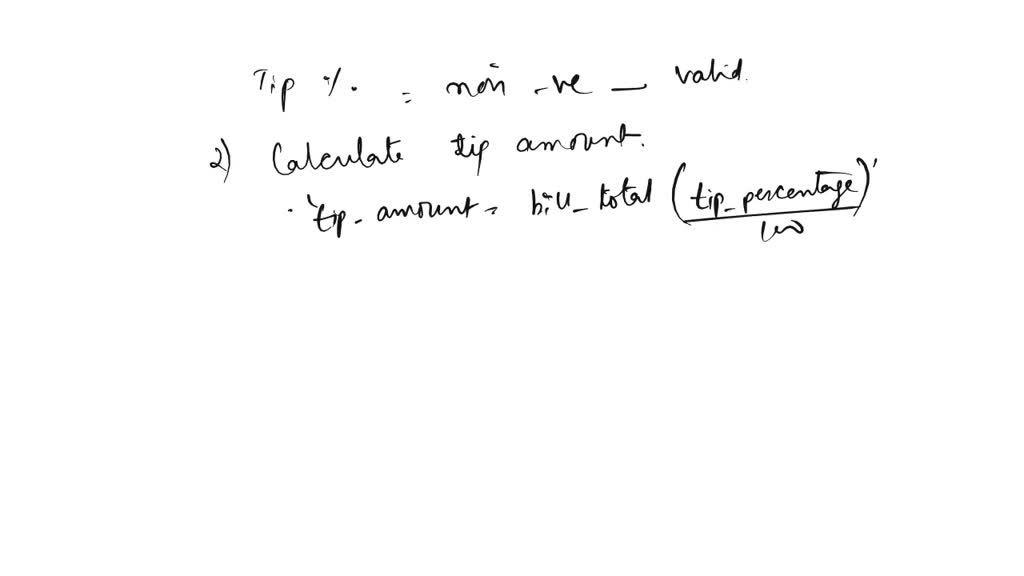 Tip %. = non -ve — valid.
2) Calculate tip amount.
. 'tip_amount = bill_total (tip_percentage)'
100